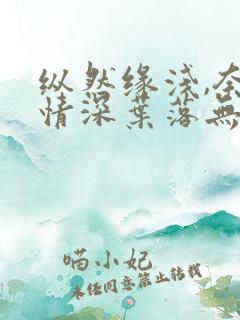 纵然缘浅,奈
情深葉落無
喵小妃
未经同意禁止转载